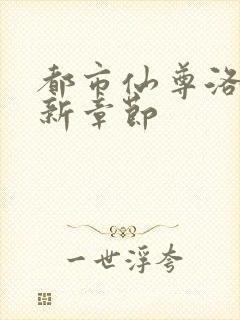 都市仙尊洛
新章节
一世浮夸